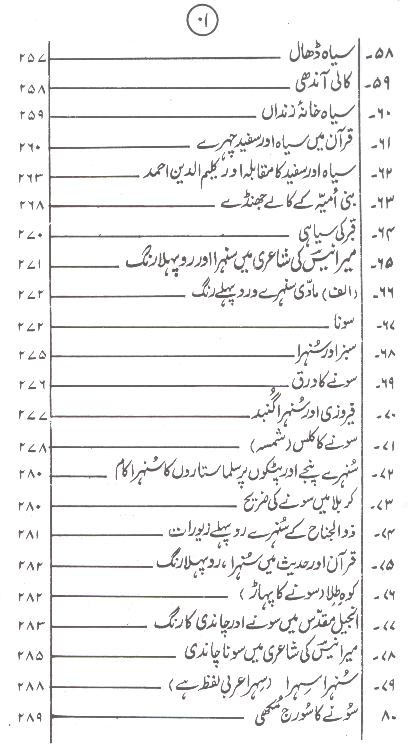 ۱۰
۵۸۔ سیاہ ڈھال ۲۵۷
۵۹۔ کالی آندھی ۲۵۸
۶۰۔ سیاہ خانۂ زنداں ۲۵۹
۶۱۔ قرآن میں سیاہ اور سفید چہرے ۲۶۰
۶۲۔ سیاہ اور سفید کا مقابلہ اور کلیم الدین احمد ۲۶۳
۶۳۔ بنی اُمیّہ کے کالے جھنڈے ۲۶۸
۶۴۔ قبر کی سیاہی ۲۷۰
۶۵۔ میر انیسؔ کی شاعری میں سنہرا اور روپہلا رنگ ۲۷۱
۶۶۔ (الف) مادّی سنہرے و روپہلے رنگ ۲۷۲
۶۷۔ سونا ۲۷۲
۶۸۔ سبز اور سُنہرا ۲۷۵
۶۹۔ سونے کا ورق ۲۷۶
۷۰۔ فیروزی اور سُنہرا گُنبد ۲۷۷
۷۱۔ سونے کا کلس (شمسہ) ۲۷۸
۷۲۔ سُنہرے پنجے اور پٹکوں پر سلما ستاروں کا سُنہرا کام ۲۸۰
۷۳۔ کربلا میں سونے کی ضریح ۲۸۰
۷۴۔ ذوالجناح کے سُنہرے روپہلے زیورات ۲۸۱
۷۵۔ قرآن اور حدیث میں سُنہرا، روپہلا رنگ ۲۸۲
۷۶۔ کوہِ طِلا (سونے کا پہاڑ) ۲۸۲
۷۷۔ انجیل مقدّس میں سونے اور چاندی کا رنگ ۲۸۳
۷۸۔ میر انیسؔ کی شاعری میں سونا چاندی ۲۸۵
۷۹۔ سُنہرا سہرا (سہرا عربی لفظ ہے) ۲۸۸
۸۰ سُونے کا سُورج مُکھی ۲۸۹